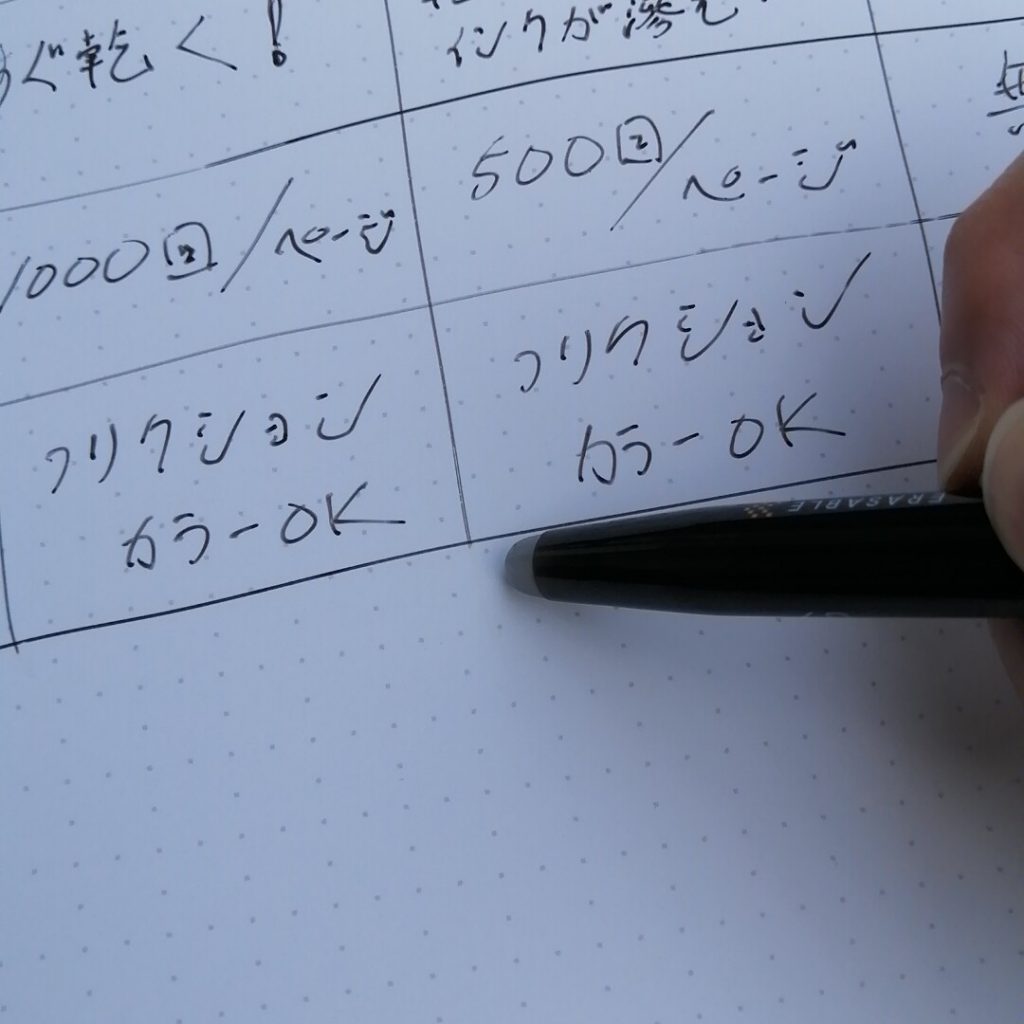 すぐ乾く!
インクが滲む
1000回/ページ
500回/ページ
無
フリクション
カラーOK
フリクション
カラーOK
ERASABLE